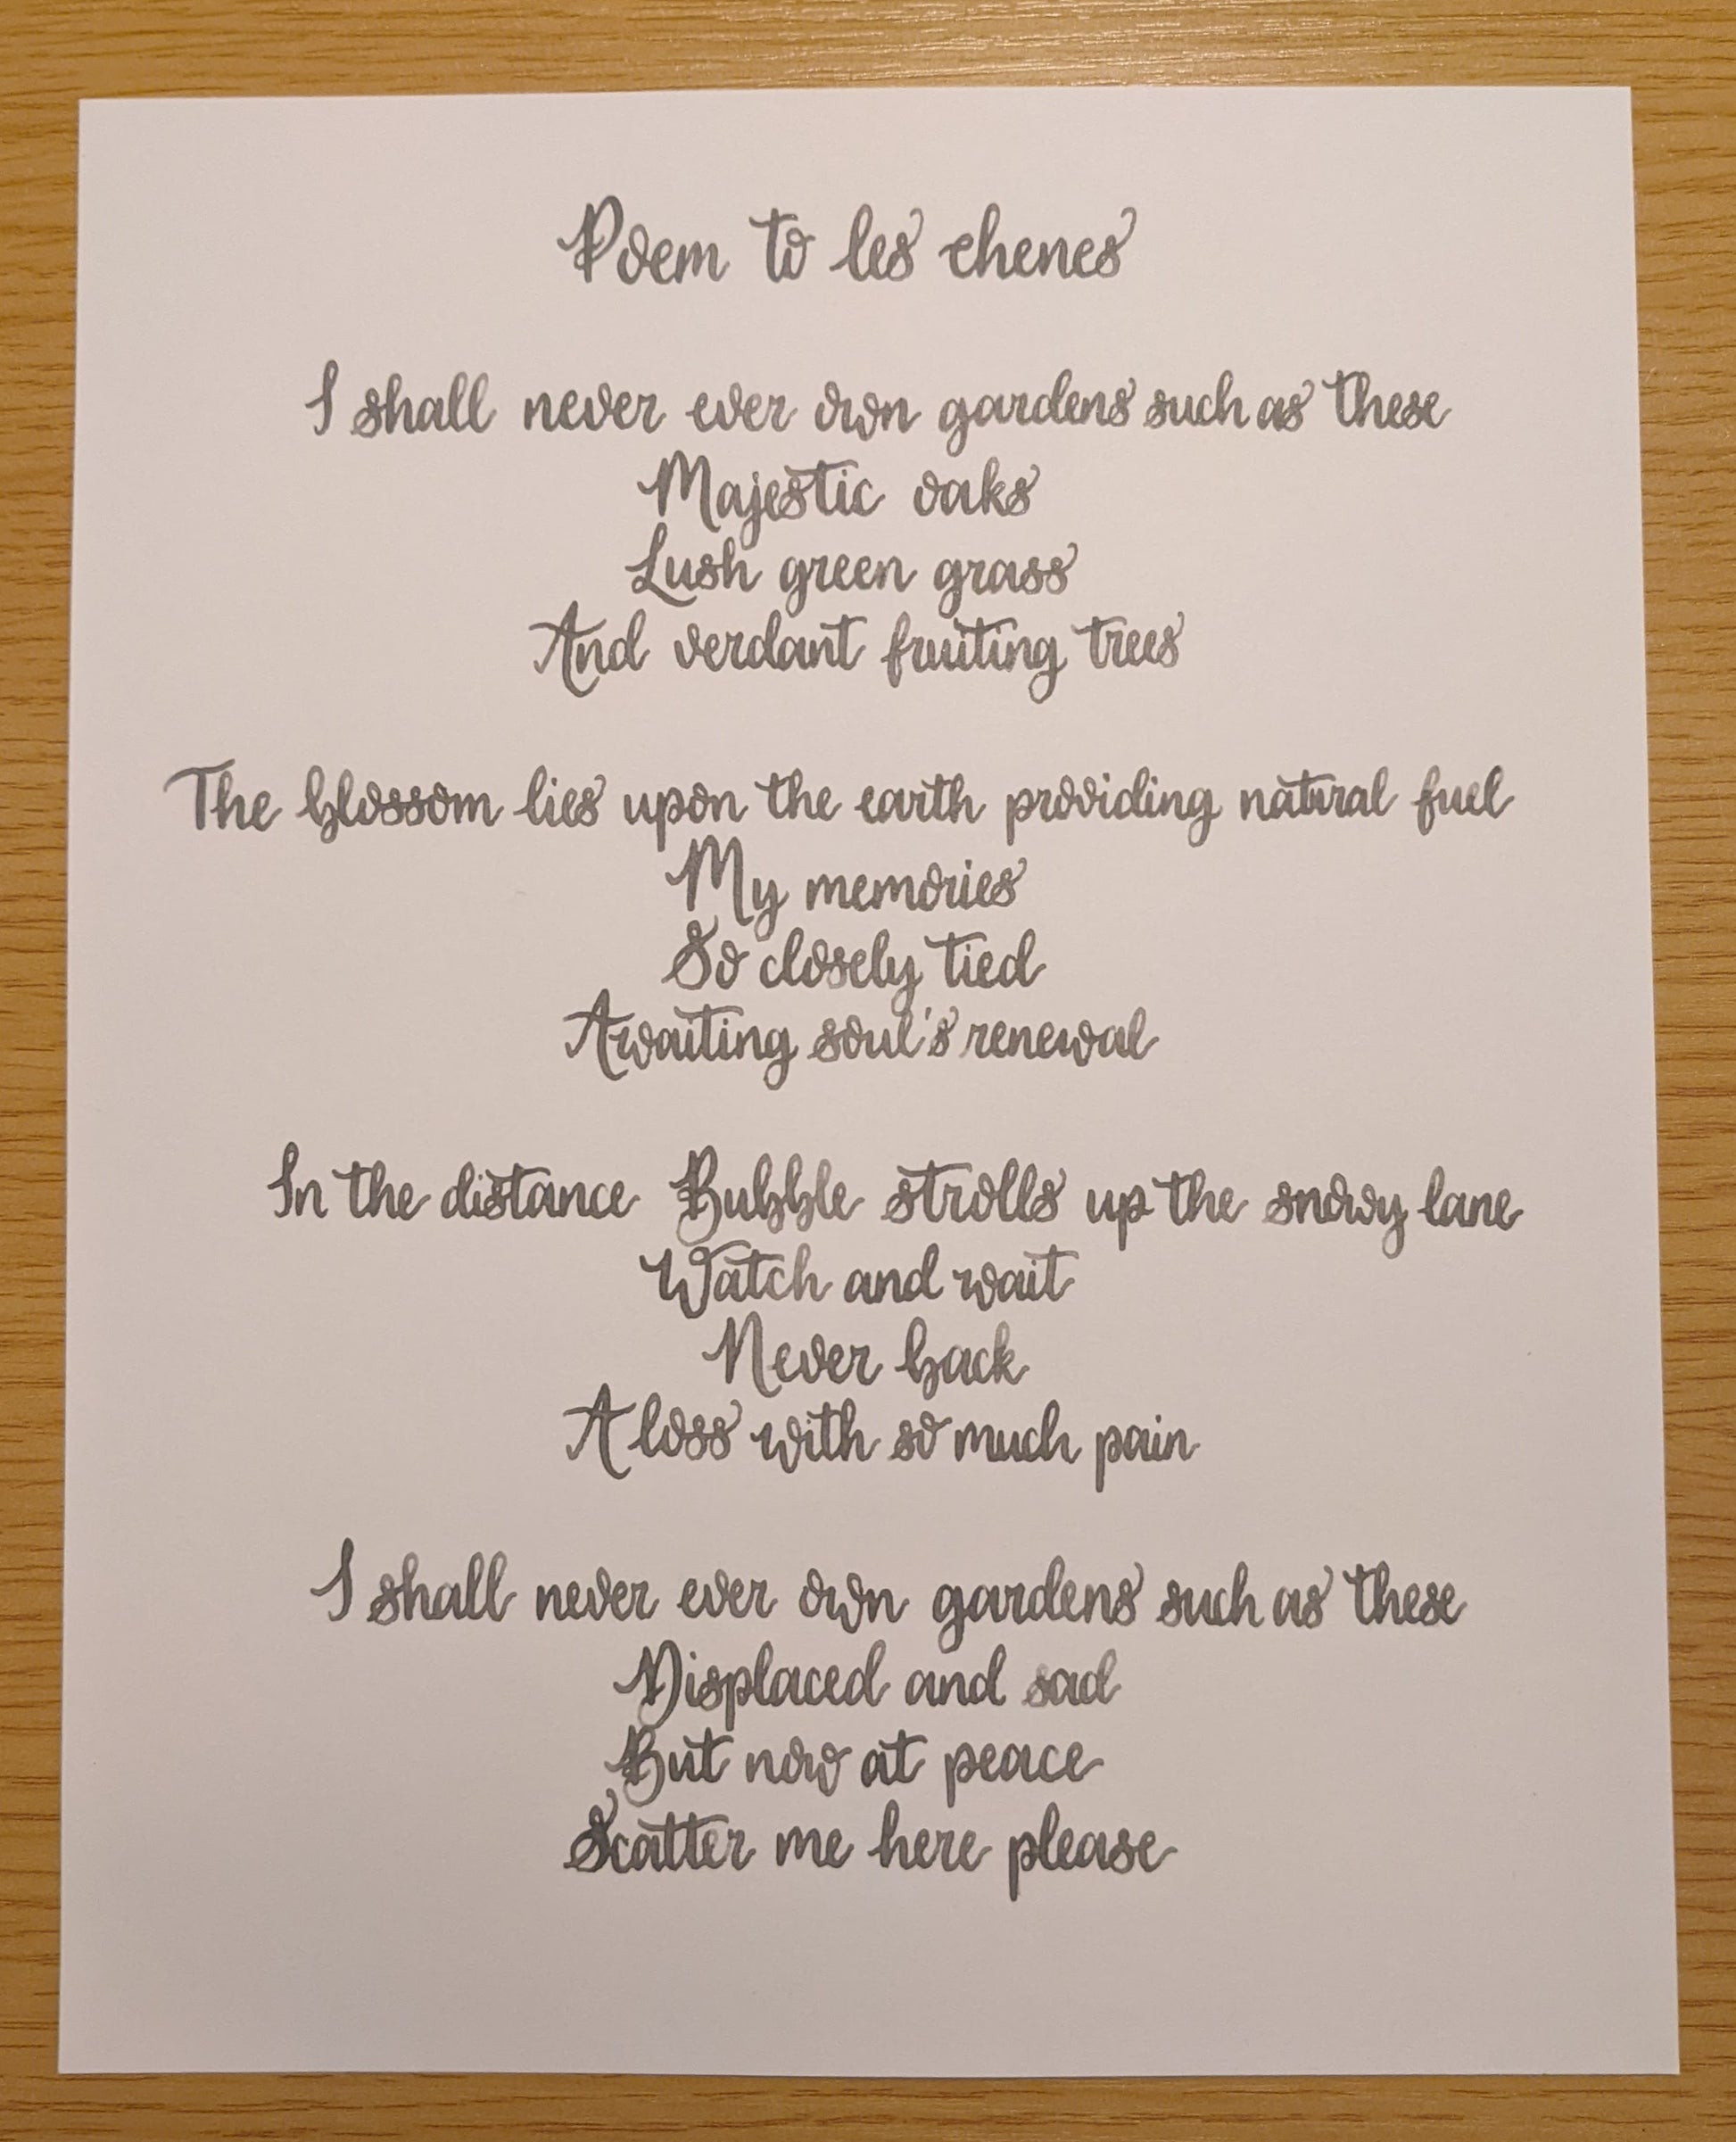 Poem to les chenes
I shall never ever own gardens such as these
Majestic oaks
Lush green grass
And verdant fruiting trees
The blossom lies upon the earth providing natural fuel
My memories
So closely tied
Awaiting soul's renewal
In the distance Bubble strolls up the snowy lane
Watch and wait
Never back
A loss with so much pain
I shall never ever own gardens such as these
Displaced and sad
But now at peace
Scatter me here please